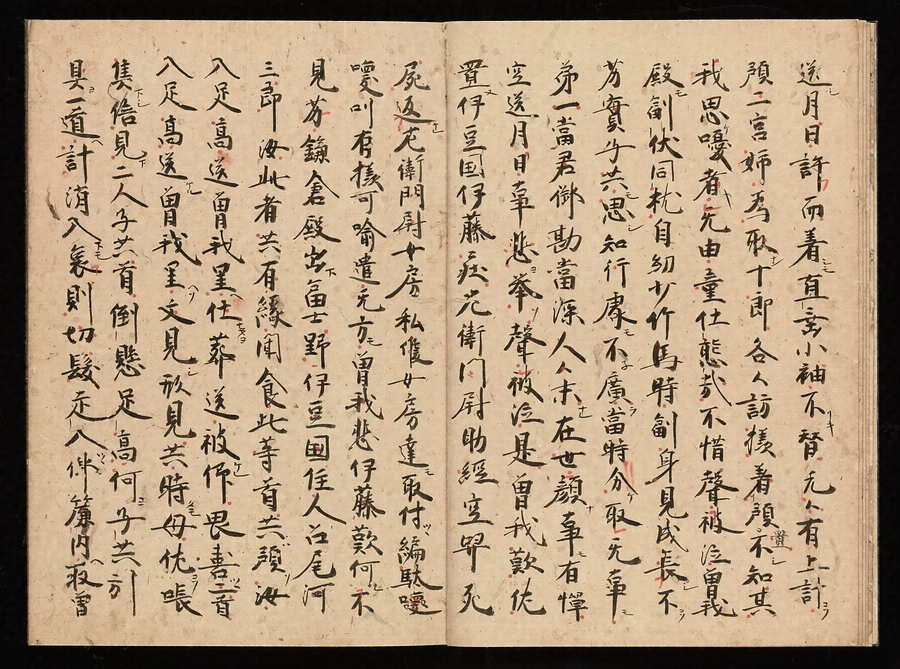 送月日許而着直垂小袖不替元人有上計
預二宮姉為取十郎各人訪様着預不知其
我思嗄者元由童仕態哉不惜聲被泣曽我
殿副伏同枕自幼少竹馬時副身見成長不
芳貢子共思知行廉不廣當時分取元事
第一當君御勘當深人人末在世顔事有憚
空送月日事悲挙聲被泣是曽我歎伏
置伊豆国伊藤在左衛門尉助經空
死返左衛門尉女房私傻女房達取付編駄
嗄叫有様可喩遣元方曽我悲伊藤歎何不
見芳鎌倉殿出冨士野伊豆国住人召尾河
三郎汝此者共有縁聞食此等首共預汝
入足高送曽我里仕葬送被仰畏書二首
入足高送曽我里文見形見共時母伏
集結見二人子共首倒懸足高何子共
具一道計消入氣則切髪走入伸簾内